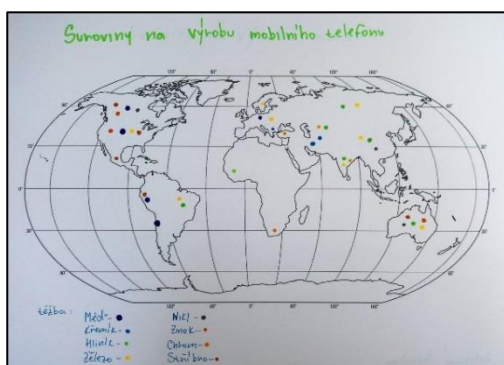 Suroviny na výrobu mobilního telefonu
120° 60° 0° 60° 120°
těžba:
Měď -
Křemík -
Hliník -
Železo -
Nikl -
Zinek -
Chrom -
Stříbro -